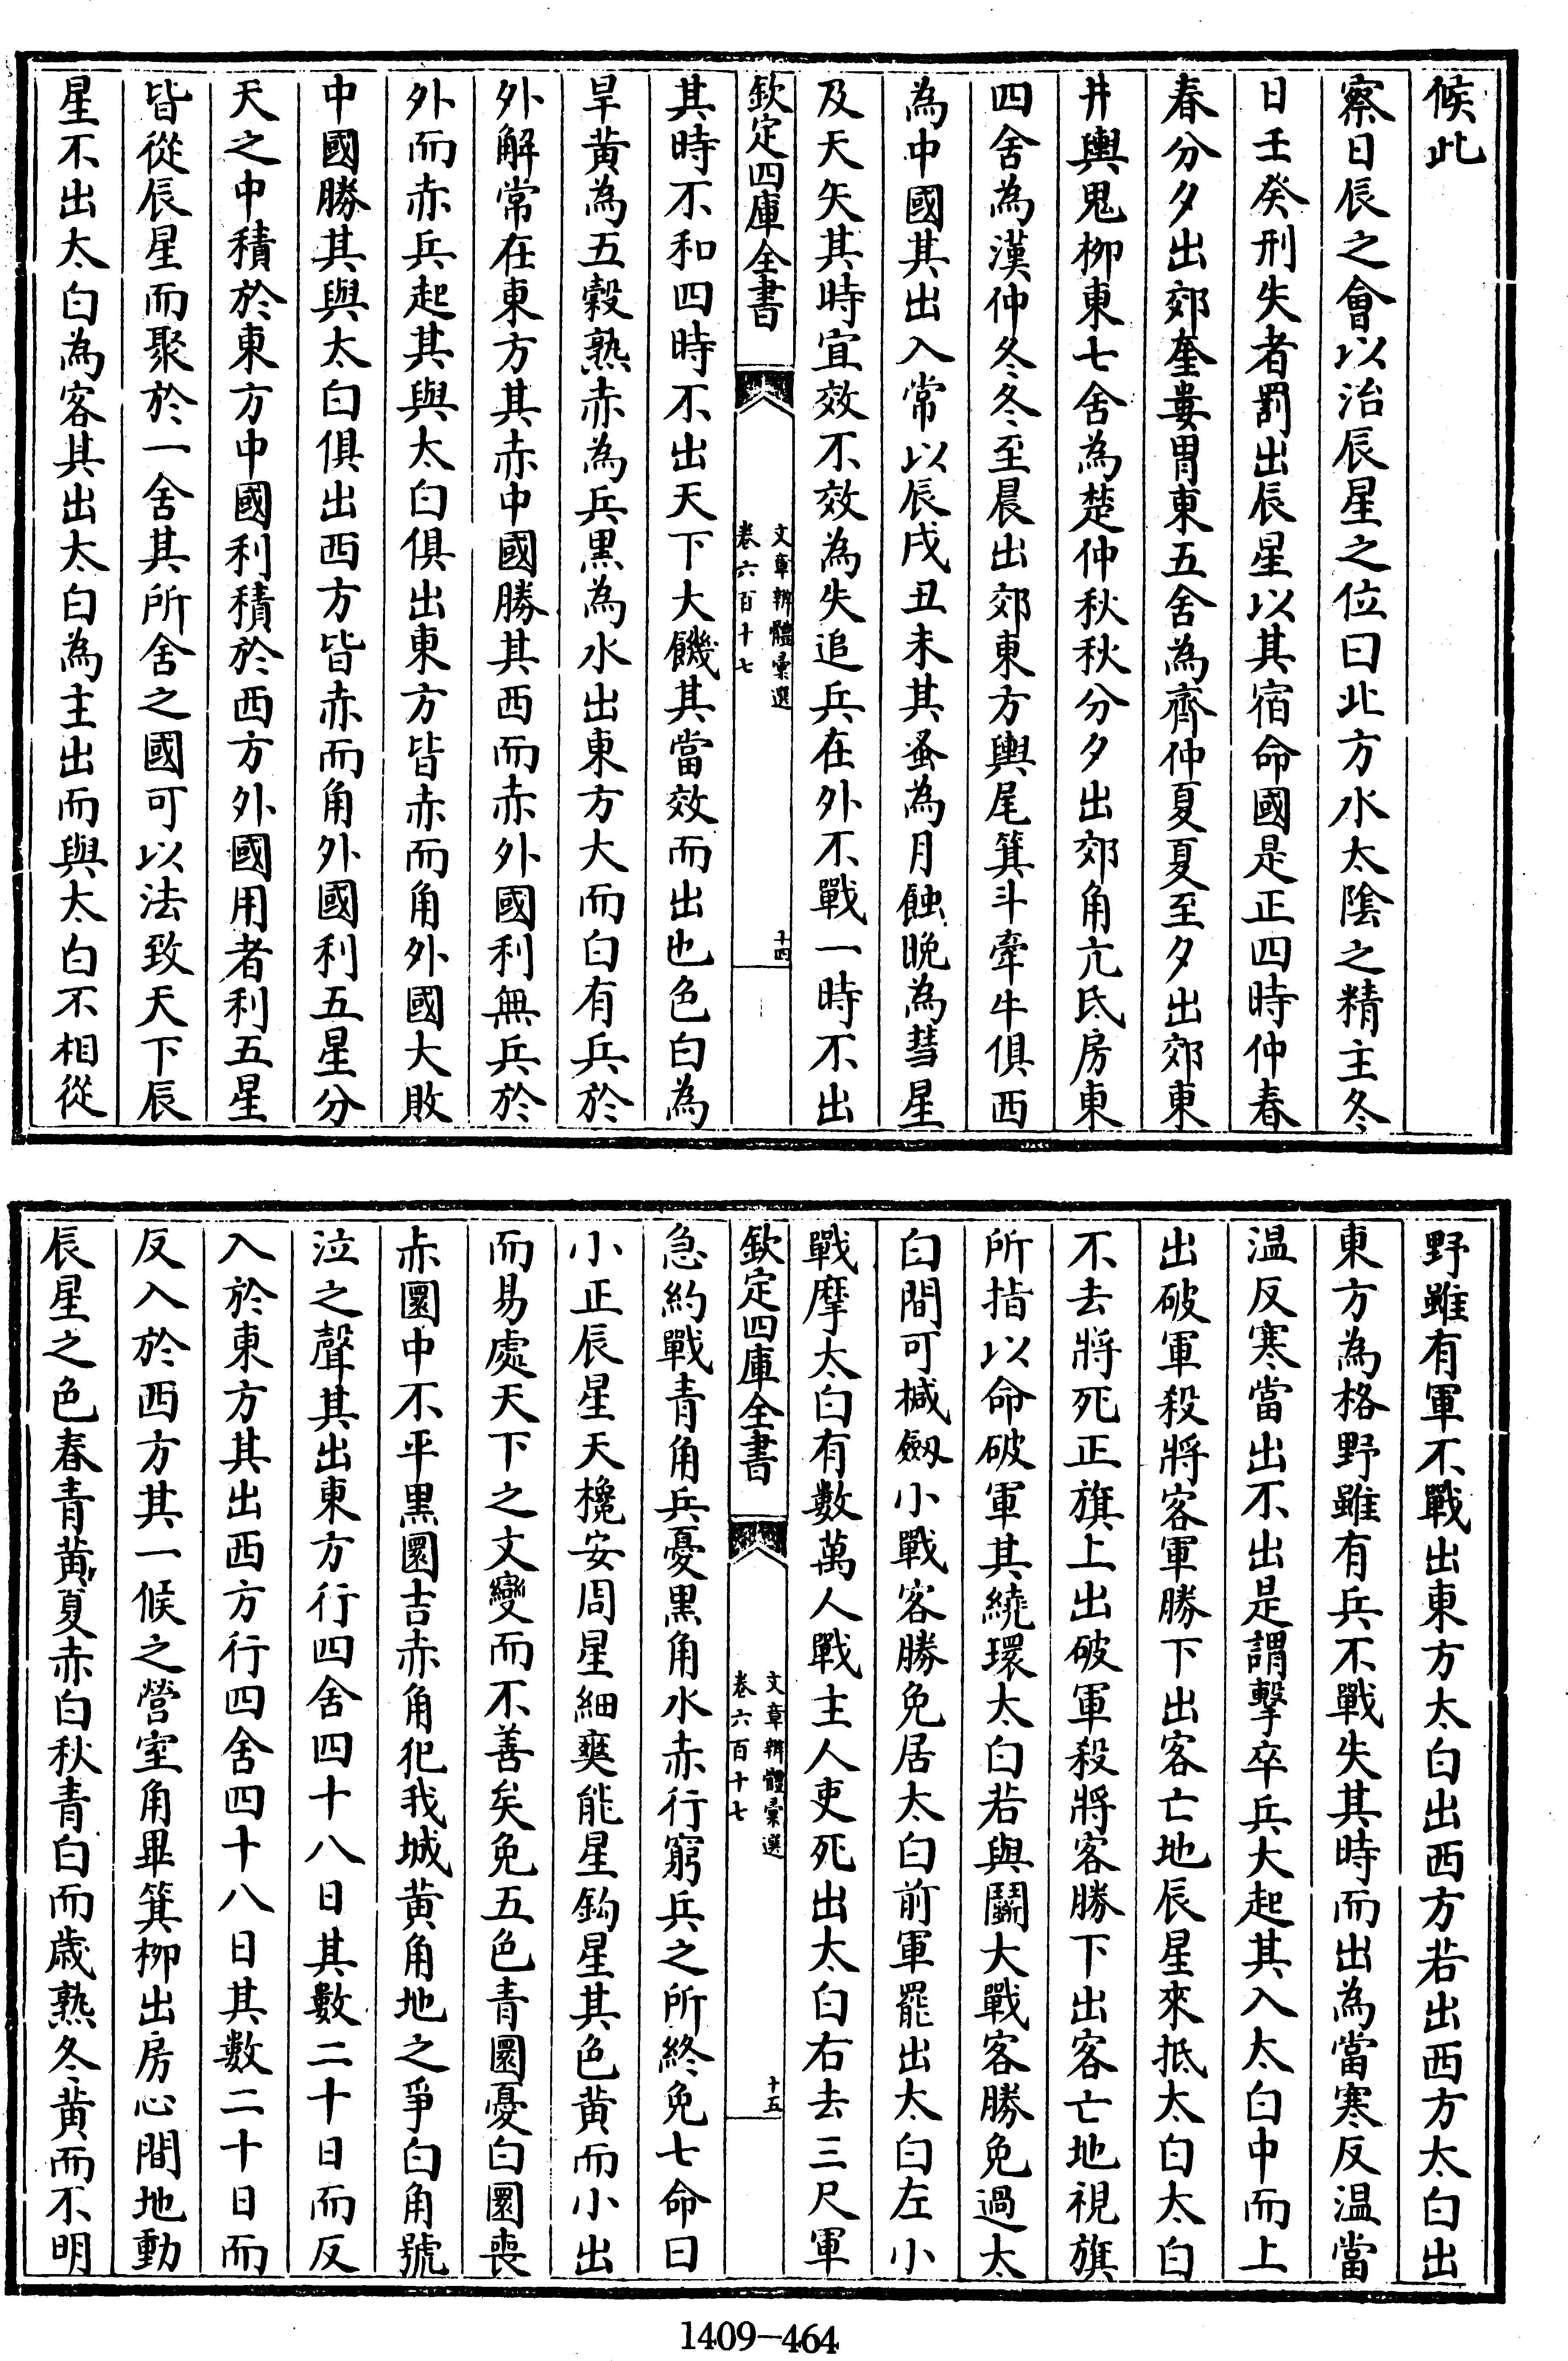 候此
察日辰之會以治辰星之位曰北方水太陰之精主冬
日壬癸刑失者罰出辰星以其宿命國是正四時仲春
春分夕出郊奎婁胃東五舍為齊仲夏夏至夕出郊東
井輿鬼柳東七舍為楚仲秋秋分夕出郊角亢氐房東
四舍為漢仲冬冬至晨出郊東方輿尾箕斗牽牛俱西
為中國其出入常以辰戌丑未其蚤為月蝕晚為彗星
及天矢其時宜效不效為失追兵在外不戰一時不出
欽定四庫全書
文章辨體彙選
卷六百十七
十四
其時不和四時不出天下大饑其當效而出也色白為
旱黃為五穀熟赤為兵黑為水出東方大而白有兵於
外解常在東方其赤中國勝其西而赤外國利無兵於
外而赤兵起其與太白俱出東方皆赤而角外國大敗
中國勝其與太白俱出西方皆赤而角外國利五星分
天之中積於東方中國利積於西方外國用者利五星
皆從辰星而聚於一舍其所舍之國可以法致天下辰
星不出太白為客其出太白為主出而與太白不相從
野雖有軍不戰出東方太白出西方若出西方太白出
東方為格野雖有兵不戰失其時而出為當寒反温當
温反寒當出不出是謂擊卒兵大起其入太白中而上
出破軍殺將客軍勝下出客亡地辰星來抵太白太白
不去將死正旗上出破軍殺將客勝下出客亡地視旗
所指以命破軍其繞環太白若與鬬大戰客勝免過太
白間可椷劒小戰客勝免居太白前軍罷出太白左小
戰摩太白有數萬人戰主人吏死出太白右去三尺軍
欽定四庫全書
文章辨體彙選
卷六百十七
十五
急約戰青角兵憂黑角水赤行窮兵之所終免七命曰
小正辰星天欃安周星細爽能星鈎星其色黃而小出
而易處天下之文變而不善矣免五色青圜憂白圜喪
赤圜中不平黑圜吉赤角犯我城黃角地之爭白角號
泣之聲其出東方行四舍四十八日其數二十日而反
入於東方其出西方行四舍四十八日其數二十日而
反入於西方其一候之營室角畢箕柳出房心間地動
辰星之色春青黃夏赤白秋青白而歲熟冬黃而不明
1409-464